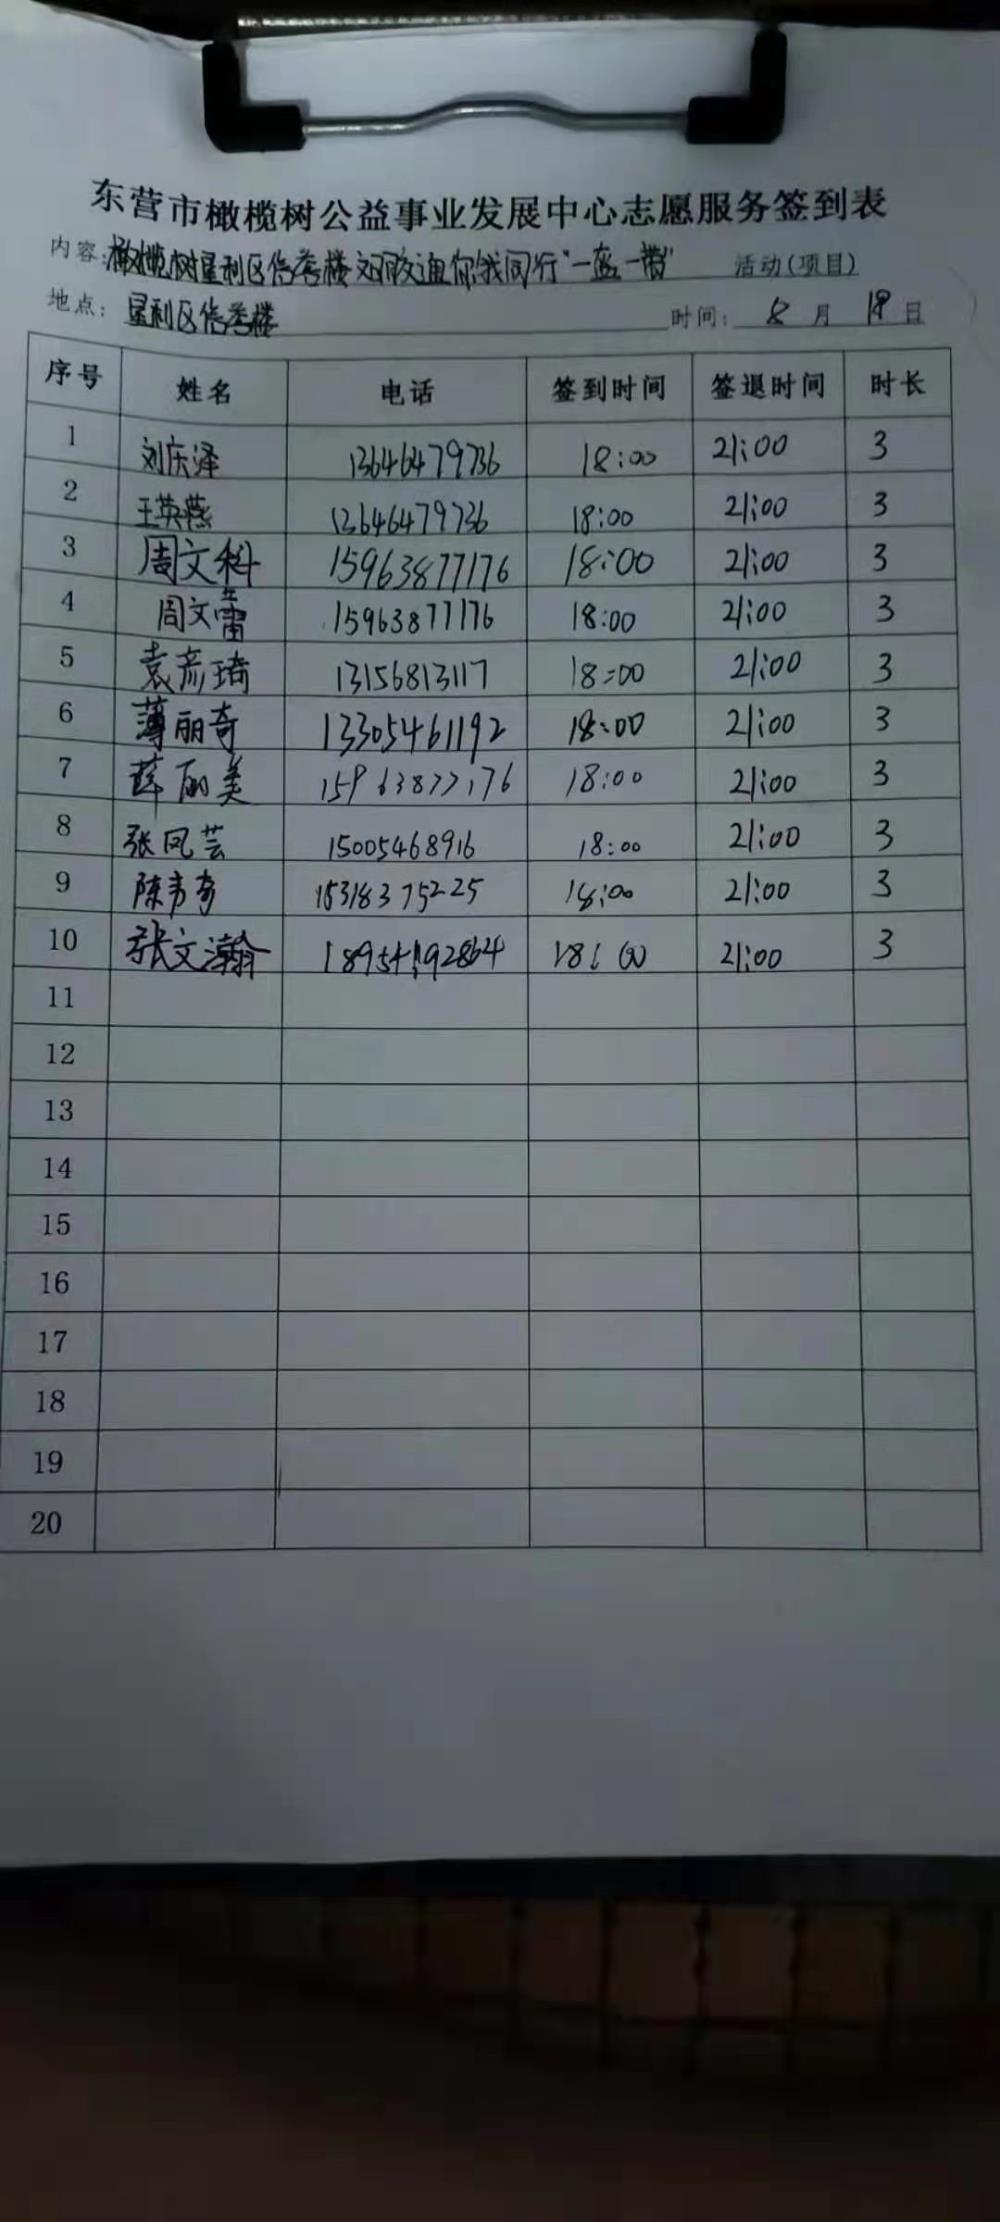 东营市橄榄树公益事业发展中心志愿服务签到表
内容:橄榄树垦利区信誉楼文明交通你我同行"一盔一带" 活动(项目)
地点: 垦利区信誉楼 时间: 8 月 18 日
序号 姓名 电话 签到时间 签退时间 时长
1 刘庆泽 13646479736 18:00 21:00 3
2 王英燕 13646479736 18:00 21:00 3
3 周文科 15963877176 18:00 21:00 3
4 周文蕾 15963877176 18:00 21:00 3
5 袁彦琦 13156813117 18:00 21:00 3
6 薄丽奇 13305461192 18:00 21:00 3
7 薛丽美 15963877176 18:00 21:00 3
8 张凤芸 15005468916 18:00 21:00 3
9 陈 15318375225 18:00 21:00 3
10 张文瀚 18:00 21:00 3
11
12
13
14
15
16
17
18
19
20